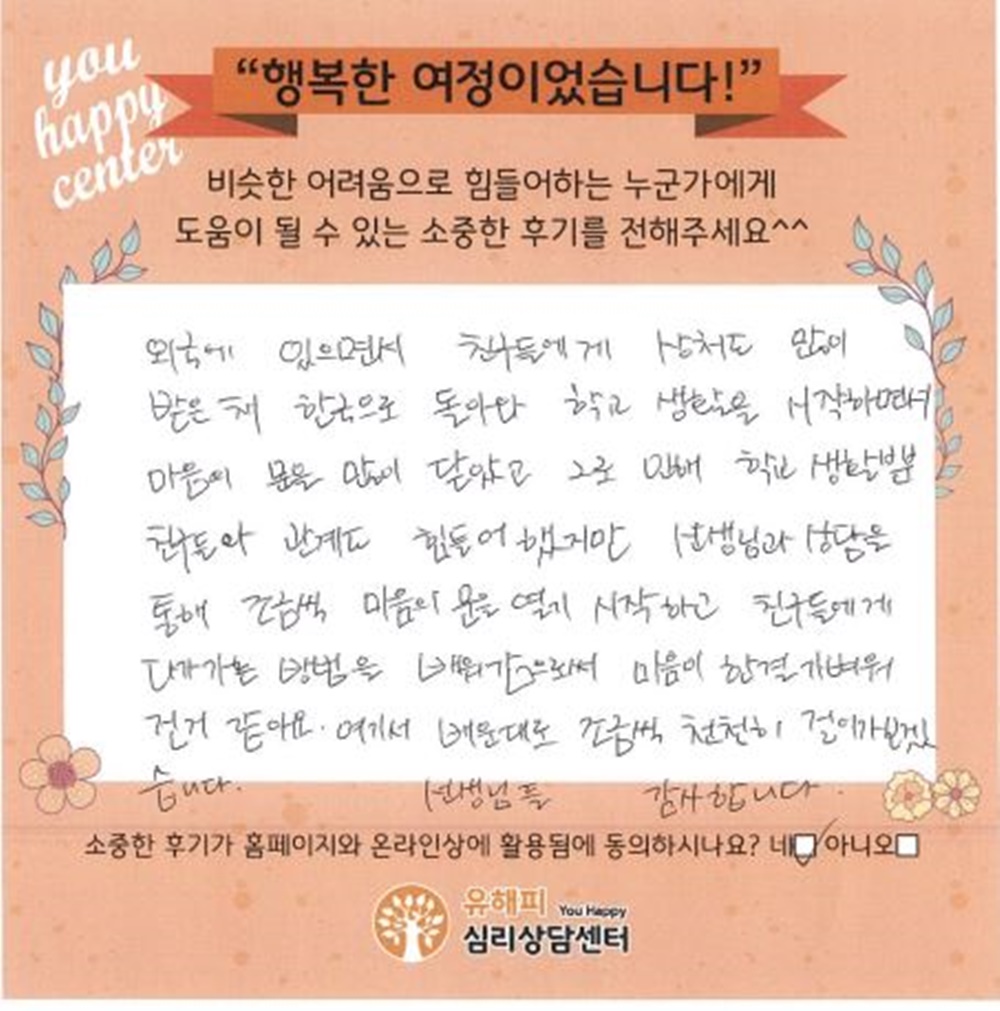 you
happy
center
“행복한 여정이었습니다!”
비슷한 어려움으로 힘들어하는 누군가에게
도움이 될 수 있는 소중한 후기를 전해주세요^^
외국에 있으면서 친구들에게 상처도 많이
받은 채 한국으로 돌아와 학교 생활을 시작하면서
마음의 문을 많이 닫았고 그로 인해 학교 생활부분
친구들와 관계도 힘들어 했지만 선생님과 상담을
통해 조금씩 마음의 문을 열기 시작하고 친구들에게
다가가는 방법을 배워감으로써 마음이 한결 가벼워
진거 같아요. 여기서 배운대로 조금씩 천천히 걸어가보겠
습니다. 선생님들 감사합니다.
소중한 후기가 홈페이지와 온라인상에 활용됨에 동의하시나요? 네 아니오
유해피 You Happy
심리상담센터